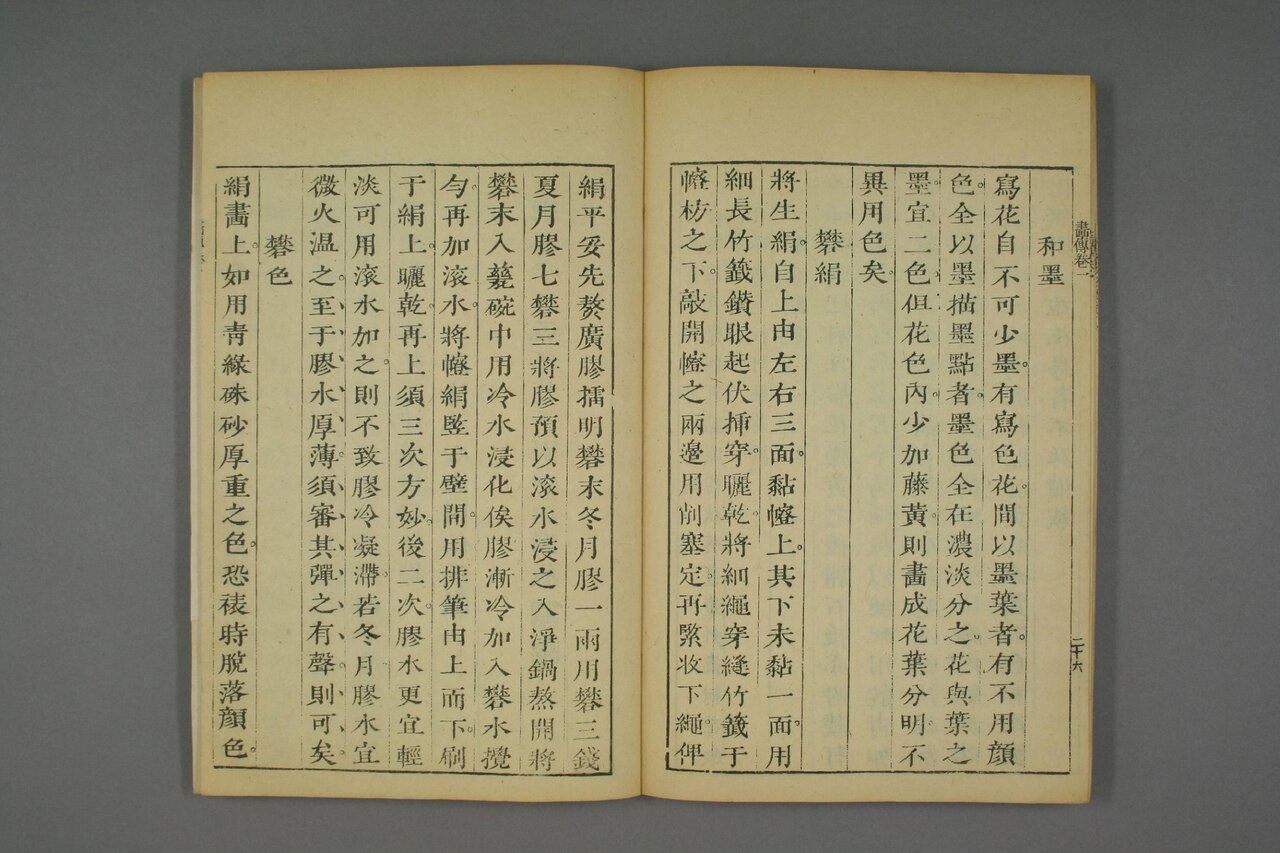 畫傳卷一
二十六
和墨
寫花自不可少墨。有寫色花。間以墨葉者。有不用顏
色。全以墨描墨點者。墨色全在濃淡分之。花與葉之
墨。宜二色。但花色內。少加藤黃。則畫成花葉分明。不
異用色矣。
礬絹
將生絹。自上由左右三面。黏幰上。其下未黏一面。用
細長竹籤。鑽眼起伏揷穿。曬乾。將細繩穿縫竹籤于
幰枋之下。敲開幰之兩邊用削塞定。再緊收下繩。俾
絹平妥先熬廣膠擂明礬末冬月膠一兩用礬三錢
夏月膠七礬三將膠預以滾水浸之入淨鍋熬開將
礬末入甆碗中用冷水浸化俟膠漸冷加入礬水攪
勻。再加滾水。將幰絹竪于壁間。用排筆由上而下。刷
于絹上。曬乾。再上須三次方妙。後二次。膠水更宜輕
淡可用滾水加之。則不致膠冷凝滯。若冬月膠水宜
微火温之。至于膠水厚薄。須審其彈之有聲則可矣。
礬色
絹畫上。如用靑綠硃砂厚重之色。恐裱時脫落顏色。